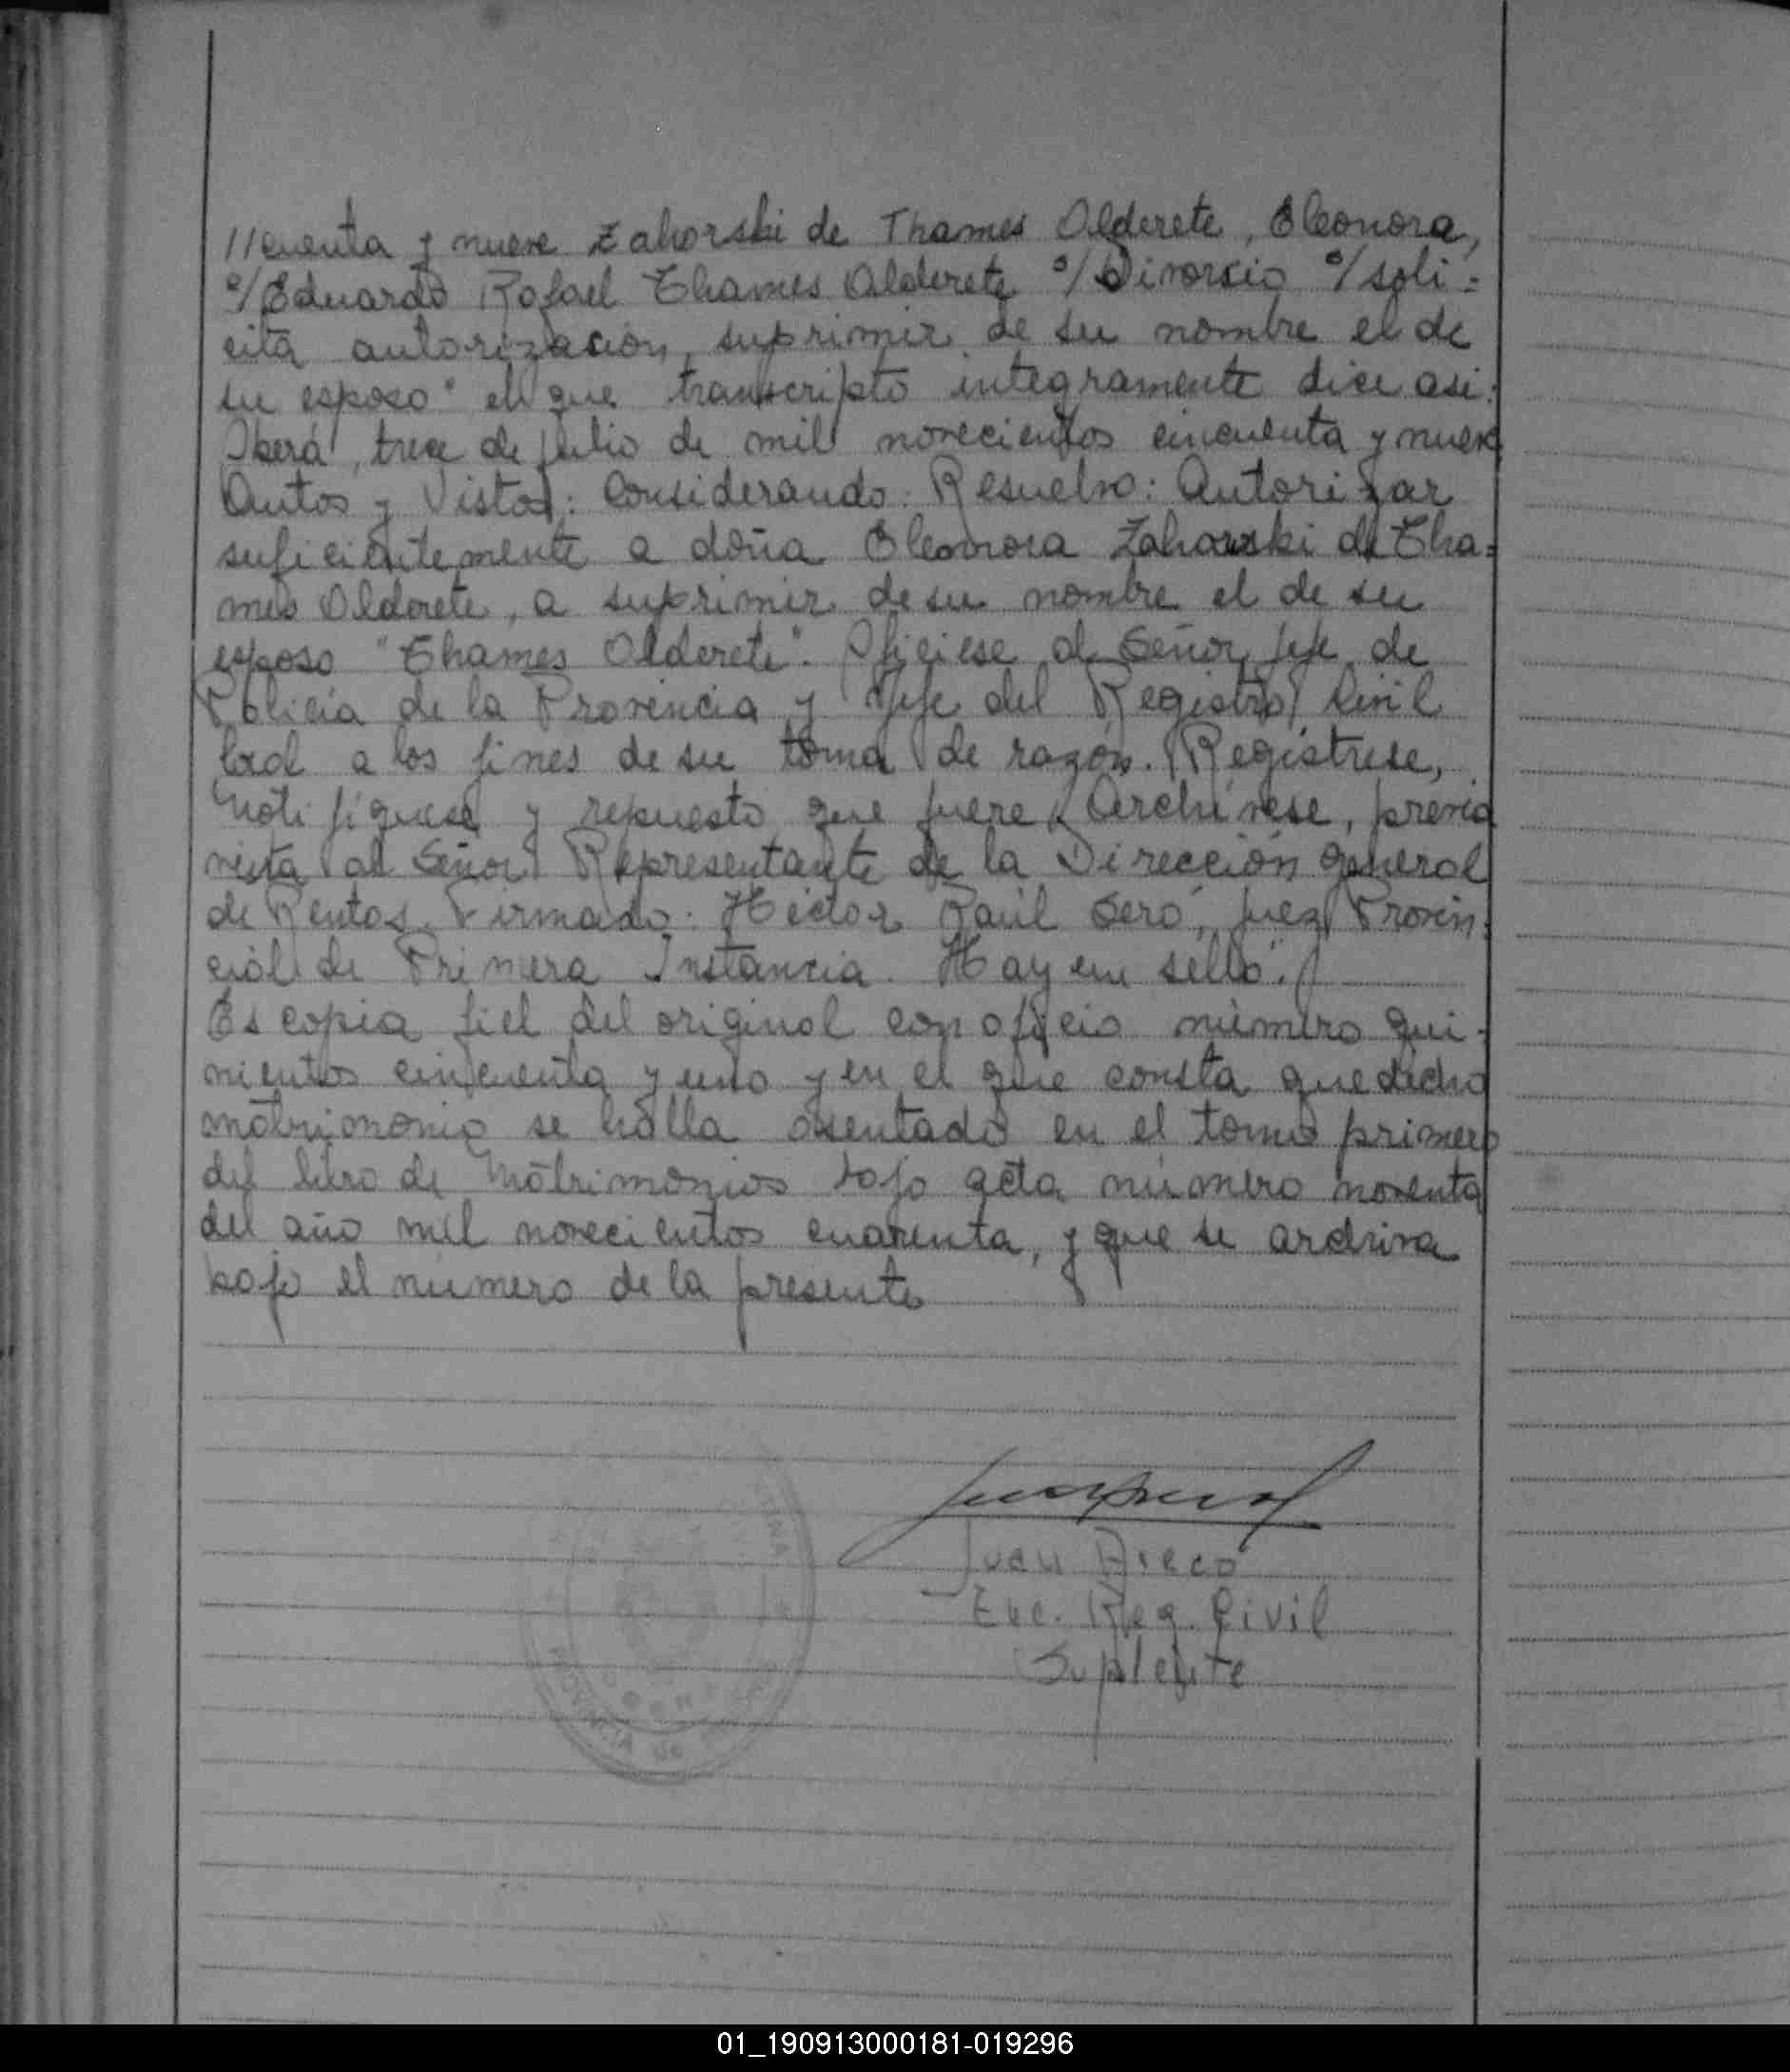 //cuenta y nueve Zahorski de Thames Alderete, Eleonora,
c/Eduardo Rafael Thames Alderete s/Divorcio s/soli=
cita autorización suprimir de su nombre el de
su esposo" el que transcripto integramente dice asi:
Oberá, trece de julio de mil novecientos cincuenta y nueve
Autos y Vistos: Considerando: Resuelvo: Autorizar
suficientemente a doña Eleonora Zahorski de Tha=
mes Alderete, a suprimir de su nombre el de su
esposo "Thames Alderete". Ofíciese al Señor Jefe de
Policía de la Provincia y Jefe del Registro Civil
local a los fines de su toma de razón. Regístrese,
Notifíquese y repuesto que fuere Archívese, previa
vista al Señor Representante de la Dirección General
de Rentas. Firmado: Héctor Raúl Seró, Juez Provin=
cial de Primera Instancia. Hay un sello".
Es copia fiel del original con oficio número qui=
nientos cincuenta y uno y en el que consta que dicho
matrimonio se halla asentado en el tomo primero
del libro de Matrimonios bajo acta número noventa
del año mil novecientos cuarenta, y que se archiva
bajo el número de la presente
Juan
Enc. Reg. Civil
Suplente
PROVINCIA de
01_190913000181-019296